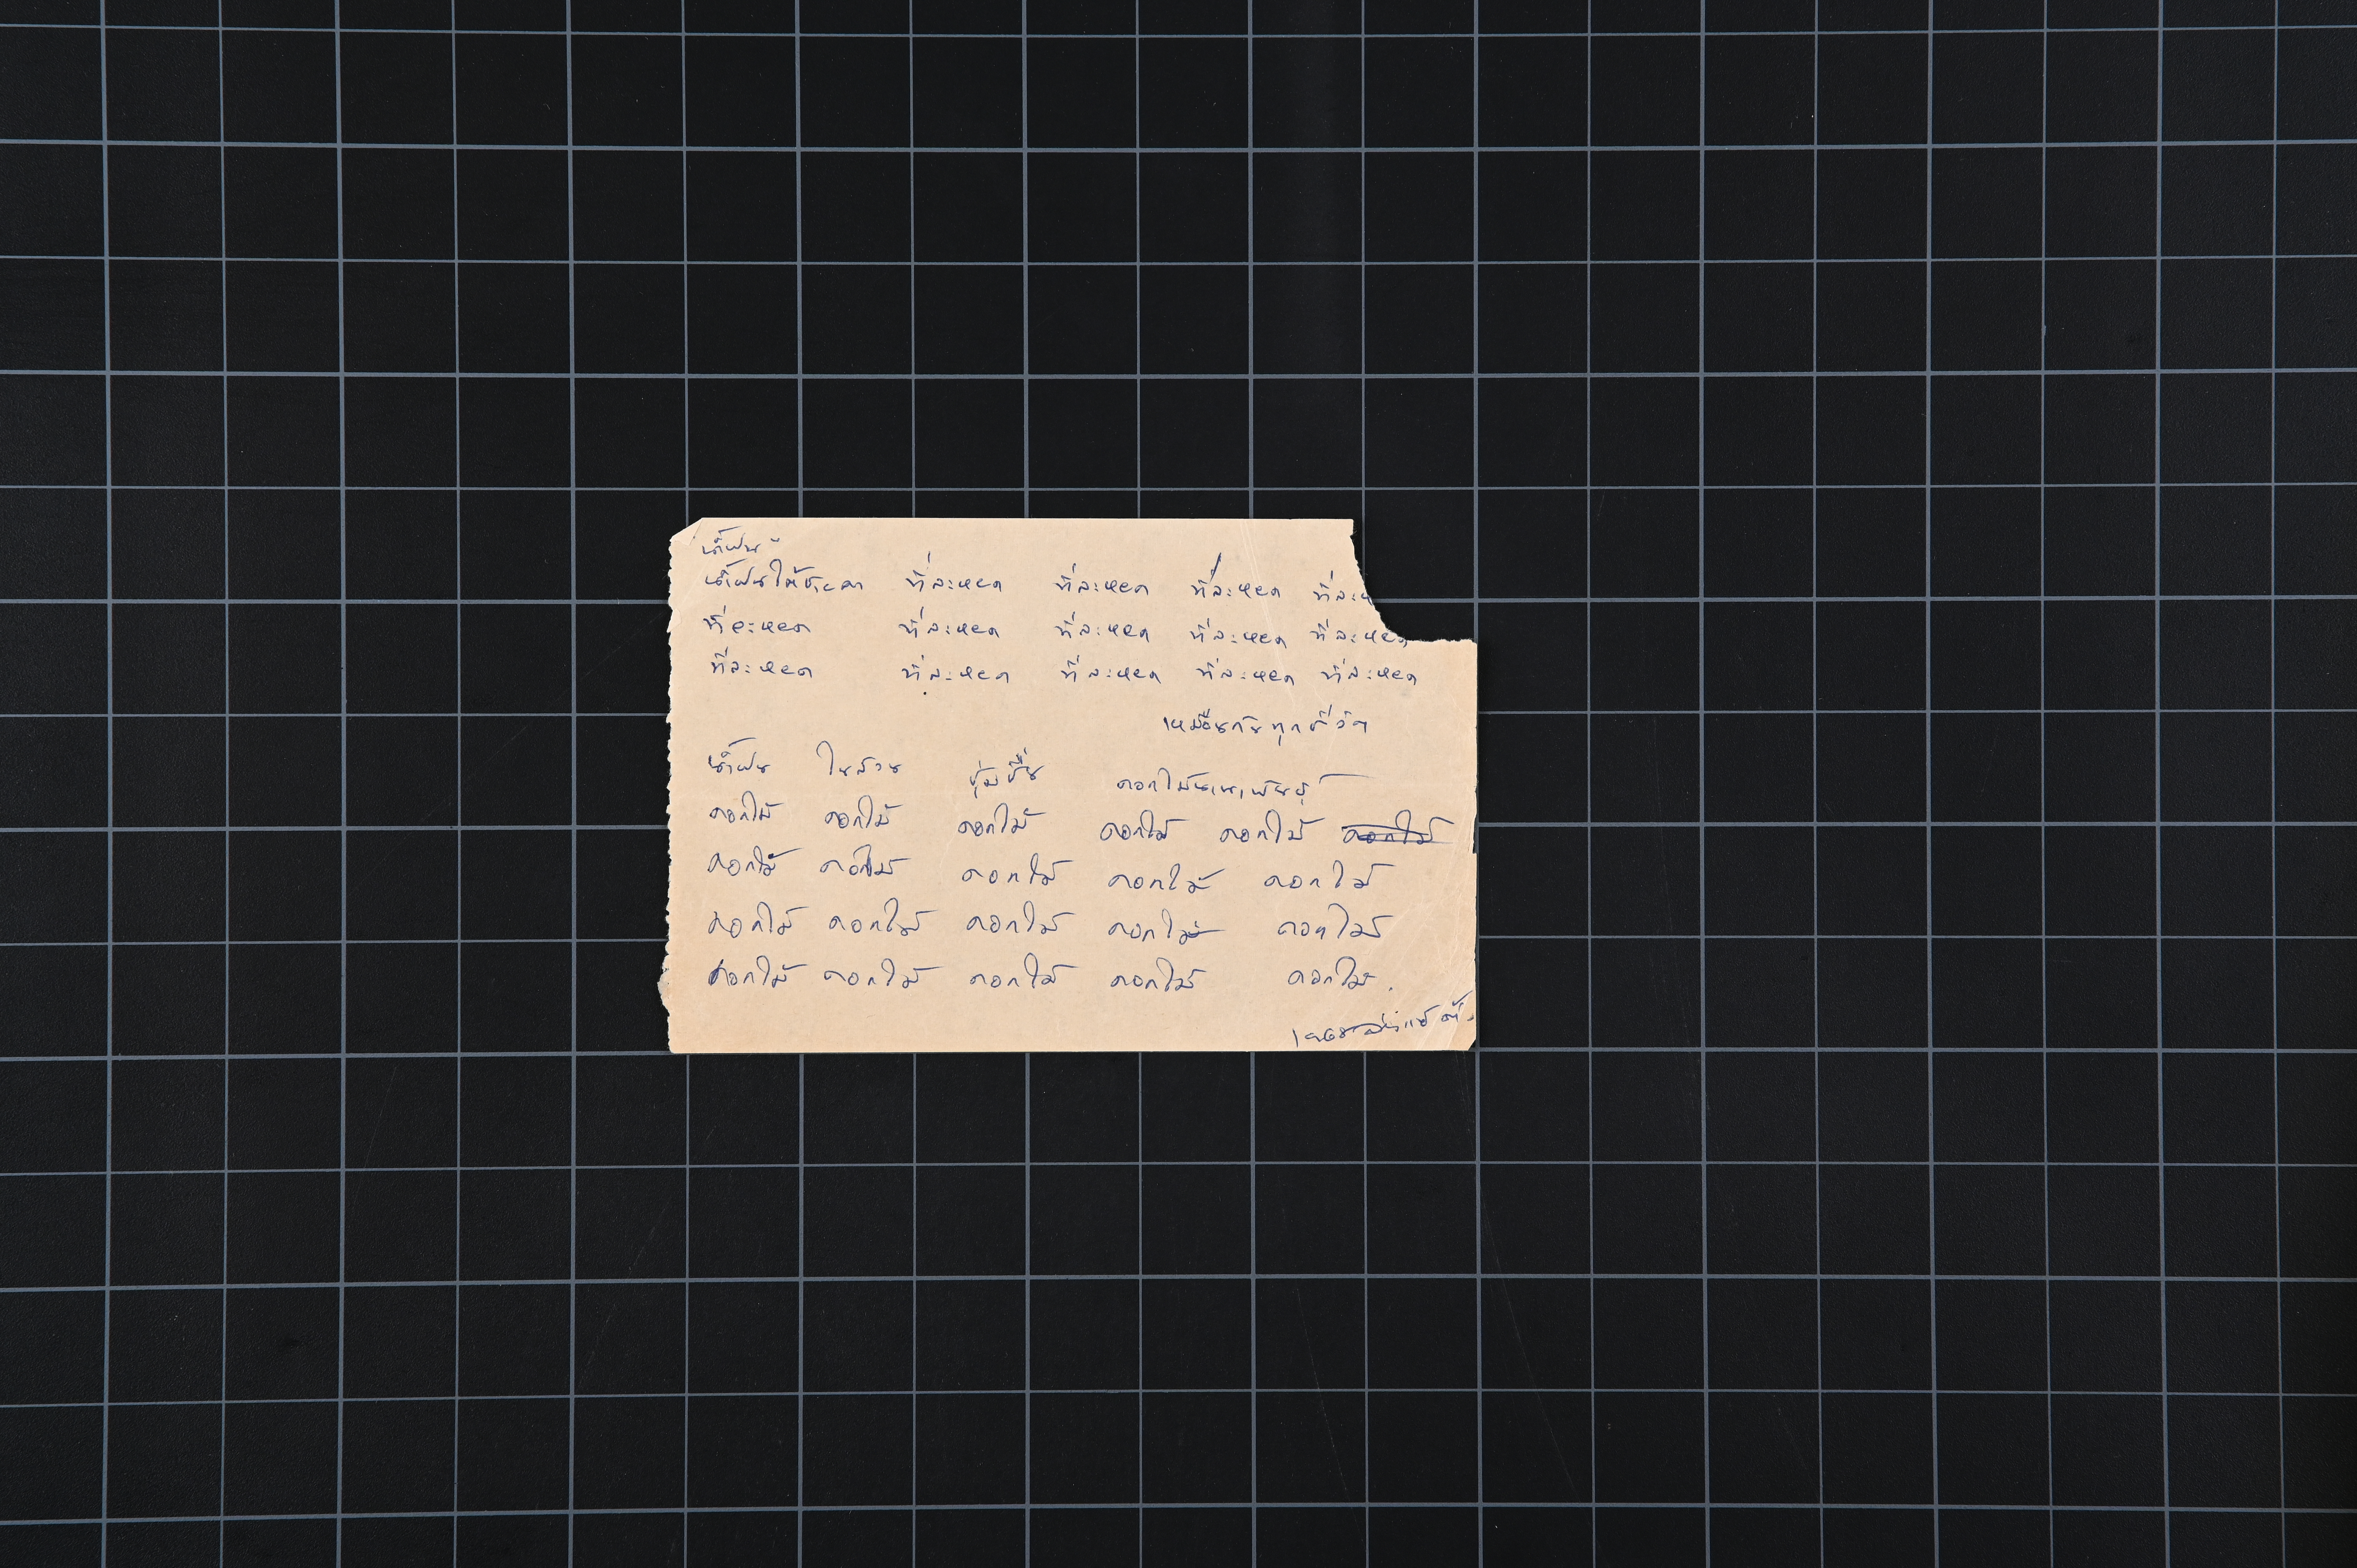 น้ำฝน
น้ำฝนให้ชะตา ที่ละหยด ที่ละหยด ที่ละหยด ที่ละห
ที่ละหยด ที่ละหยด ที่ละหยด ที่ละหยด ที่ละหยด
ที่ละหยด ที่ละหยด ที่ละหยด ที่ละหยด ที่ละหยด
เหมือนกันทุกชีวิต
น้ำฝน ในสวน ชุ่มชื่น ดอกไม้นานาพันธุ์
ดอกไม้ ดอกไม้ ดอกไม้ ดอกไม้ ดอกไม้ ดอกไม้
ดอกไม้ ดอกไม้ ดอกไม้ ดอกไม้ ดอกไม้
ดอกไม้ ดอกไม้ ดอกไม้ ดอกไม้ ดอกไม้
ดอกไม้ ดอกไม้ ดอกไม้ ดอกไม้ ดอกไม้.